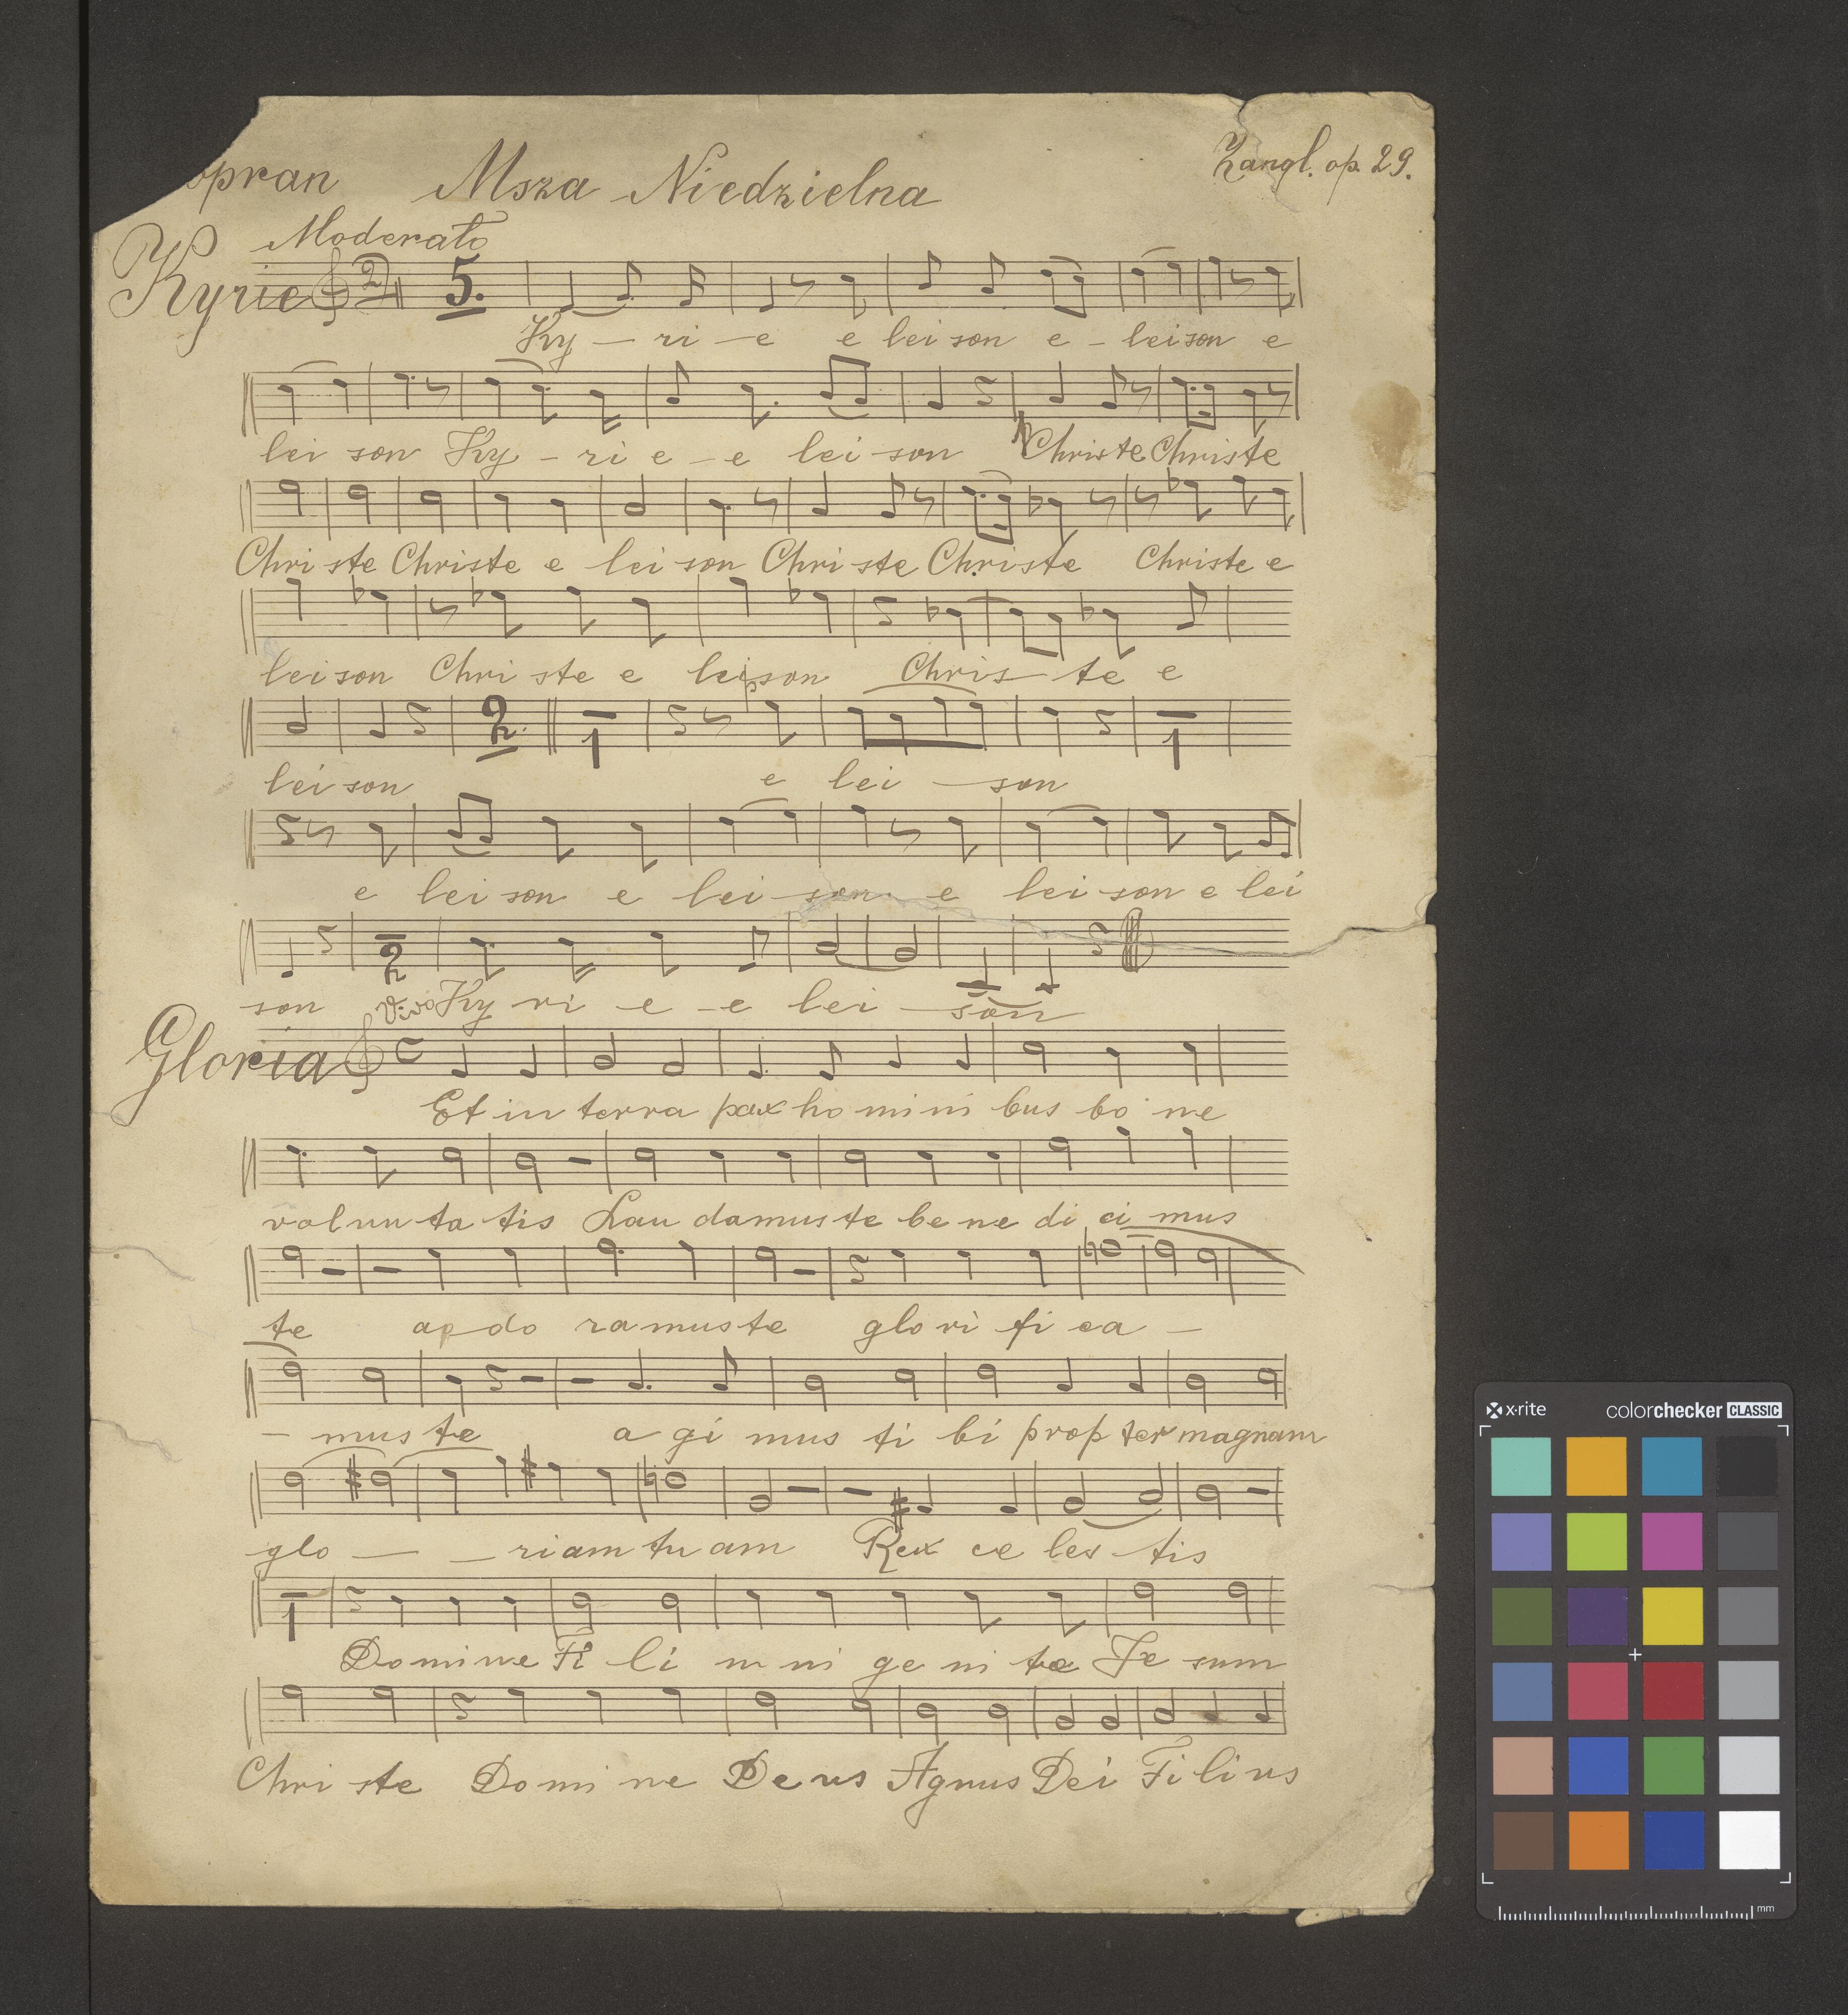 opran Msza Niedzielna Zangl. op. 29.
Moderato
Kyrie 2 5.
Ky – ri – e e lei son e – lei son e
lei son Ky – ri e – e lei – son Christe Christe
Chri ste Christe e lei son Chri ste Christe Christe e
lei son Chri ste e lei son Chris – te e
2.
1 1
lei son e lei – son
e lei son e lei – son e lei – son e lei
2
son Vivo Ky ri – e – e lei – son
Gloria C
Et in terra pax ho mi ni bus bo ne
volun ta tis Lau damus te be ne di ci mus
te ado ramus te glo ri fi ca –
– mus te a gi mus ti bi prop ter magnam
glo — – riam tu am Rex ce les – tis
1
Domine Fi li u ni ge ni te Je sum
Chri ste Do mi ne Deus Agnus Dei Fi li us
x·rite colorchecker CLASSIC
mm